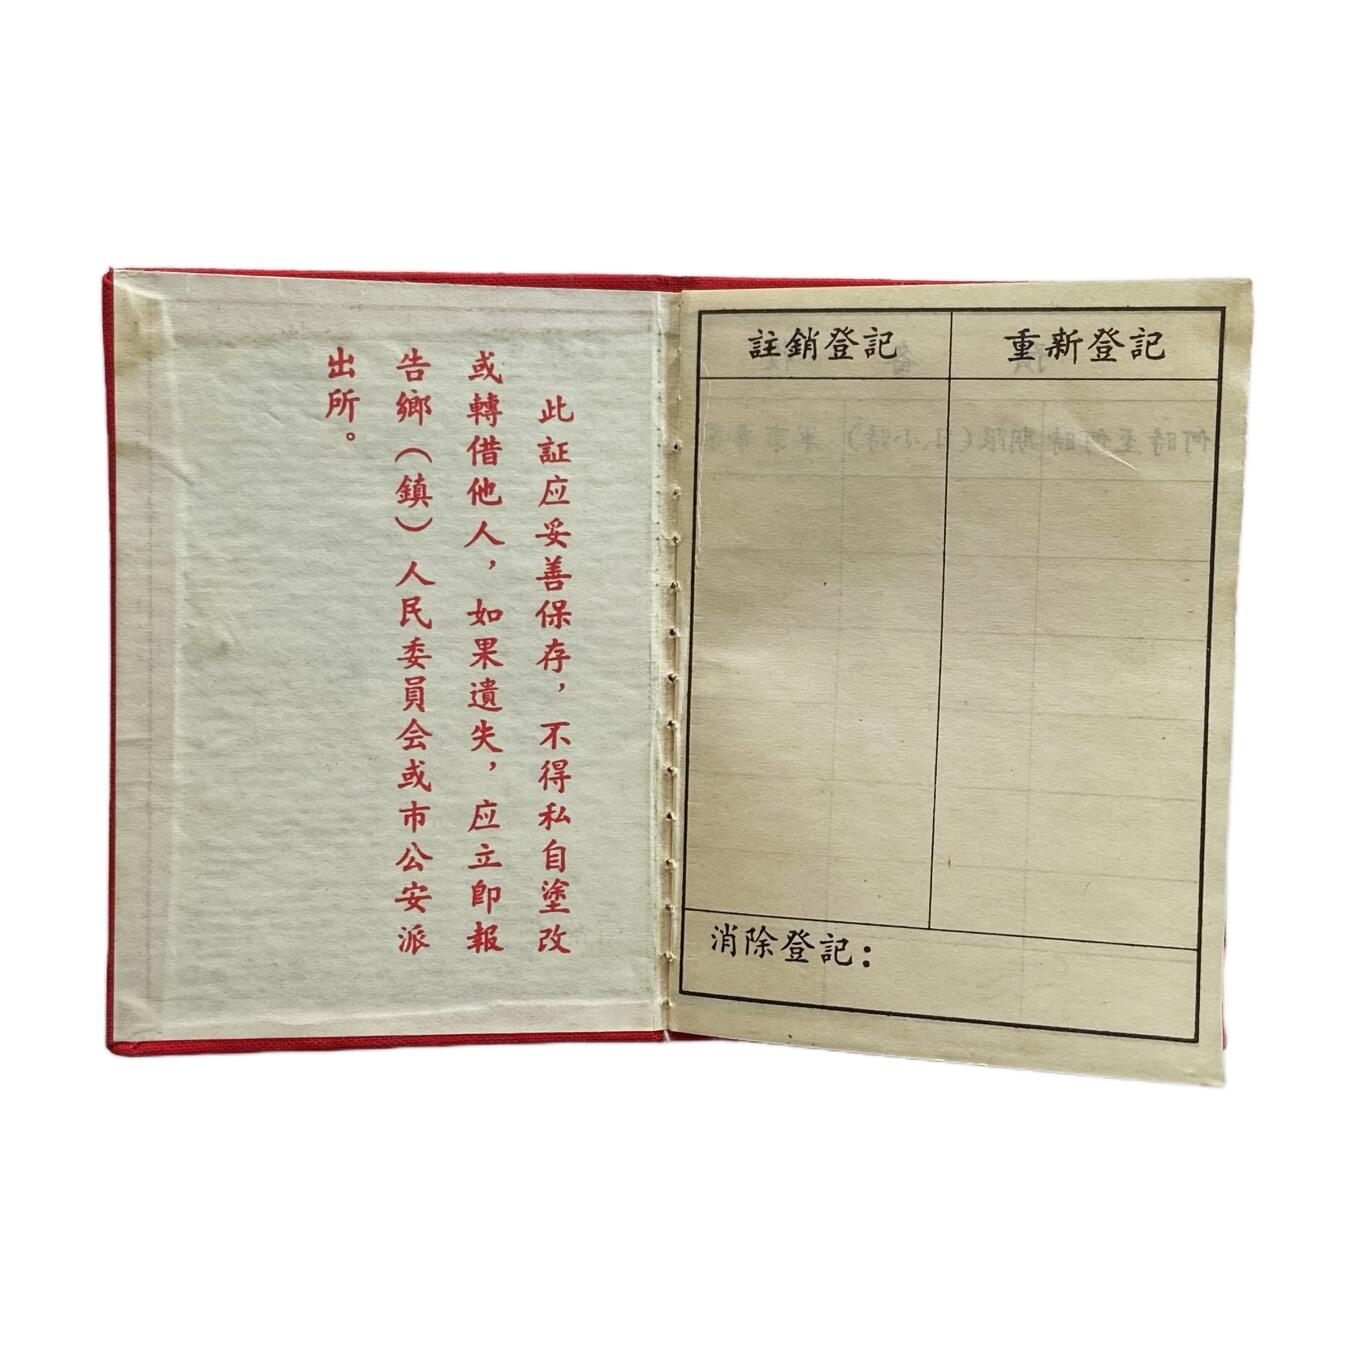 此証应妥善保存，不得私自塗改
或轉借他人，如果遺失，应立即報
告鄉（鎮）人民委員会或市公安派
出所。
註銷登記
重新登記
消除登記：